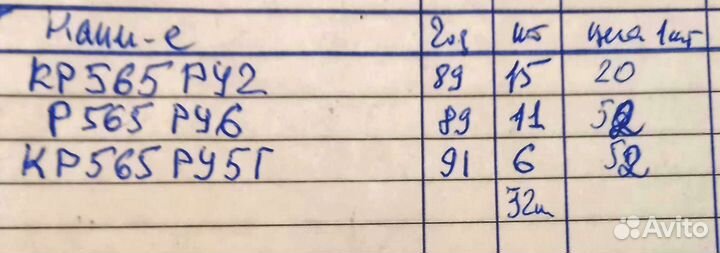 Наим-е Год шт цена 1шт
КР565РУ2 89 15 20
Р565РУ6 89 11 52
КР565РУ5Г 91 6 52
32шт
Avito